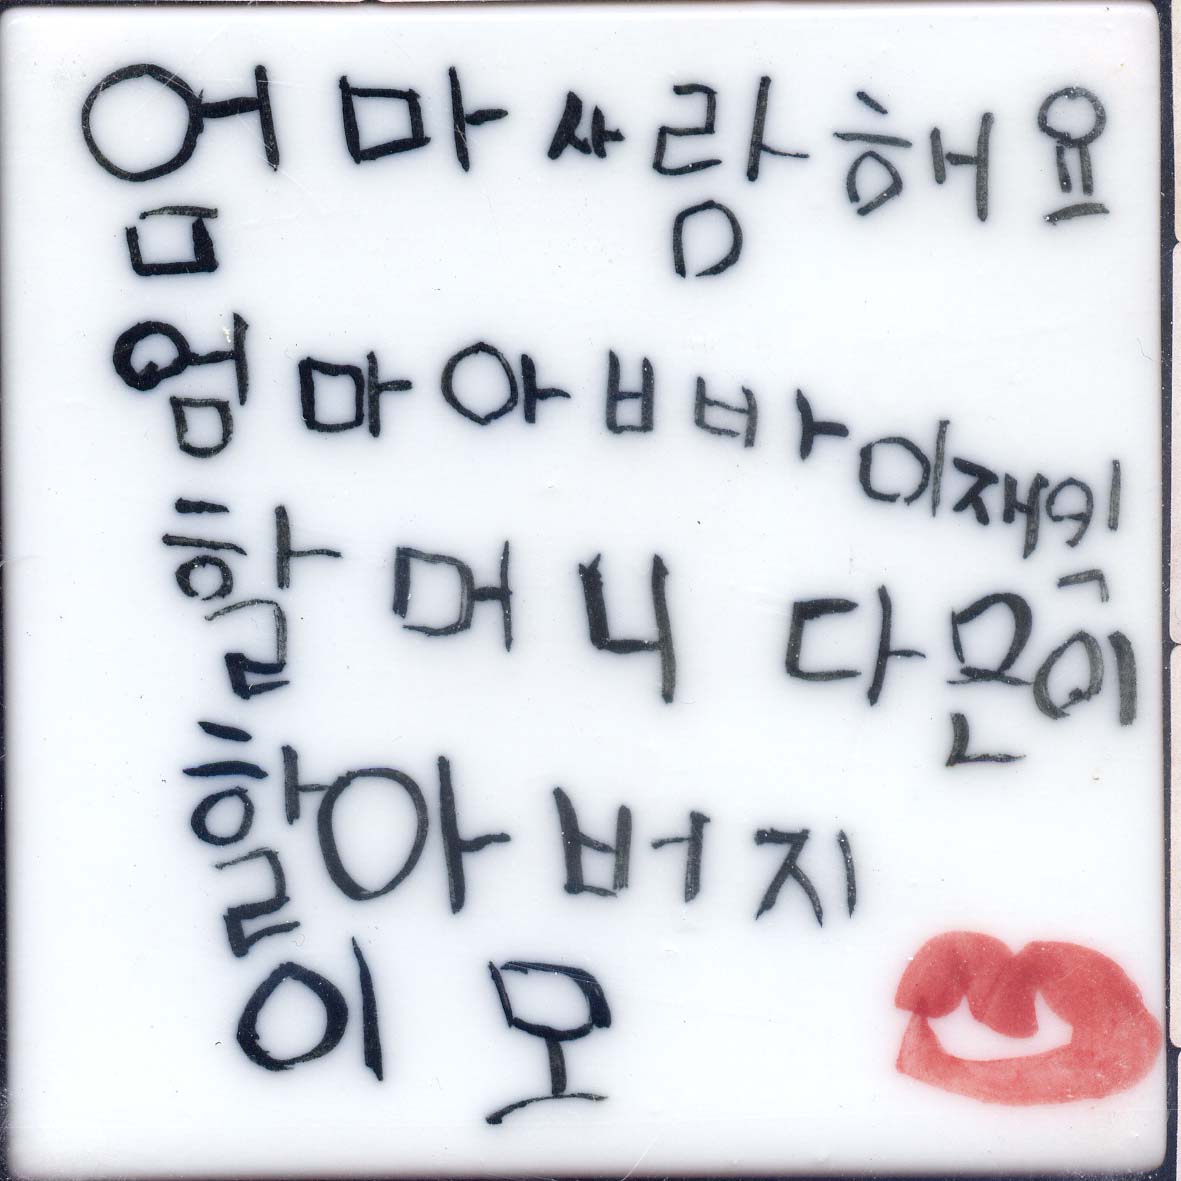 엄마 사랑해요
엄마 아빠 이재익
할머니 다은이
할아버지
이모